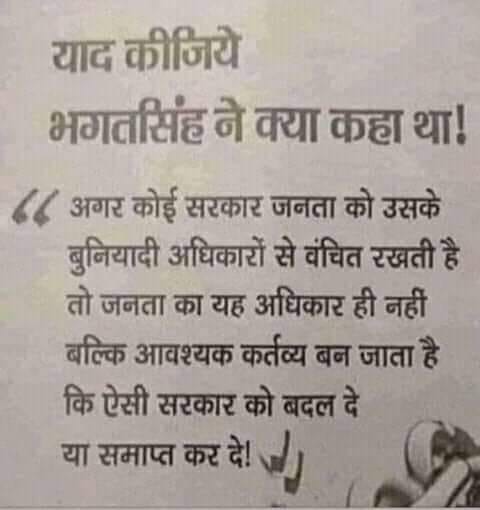 याद कीजिये
भगतसिंह ने क्या कहा था!
“ अगर कोई सरकार जनता को उसके
बुनियादी अधिकारों से वंचित रखती है
तो जनता का यह अधिकार ही नहीं
बल्कि आवश्यक कर्तव्य बन जाता है
कि ऐसी सरकार को बदल दे
या समाप्त कर दे! ”